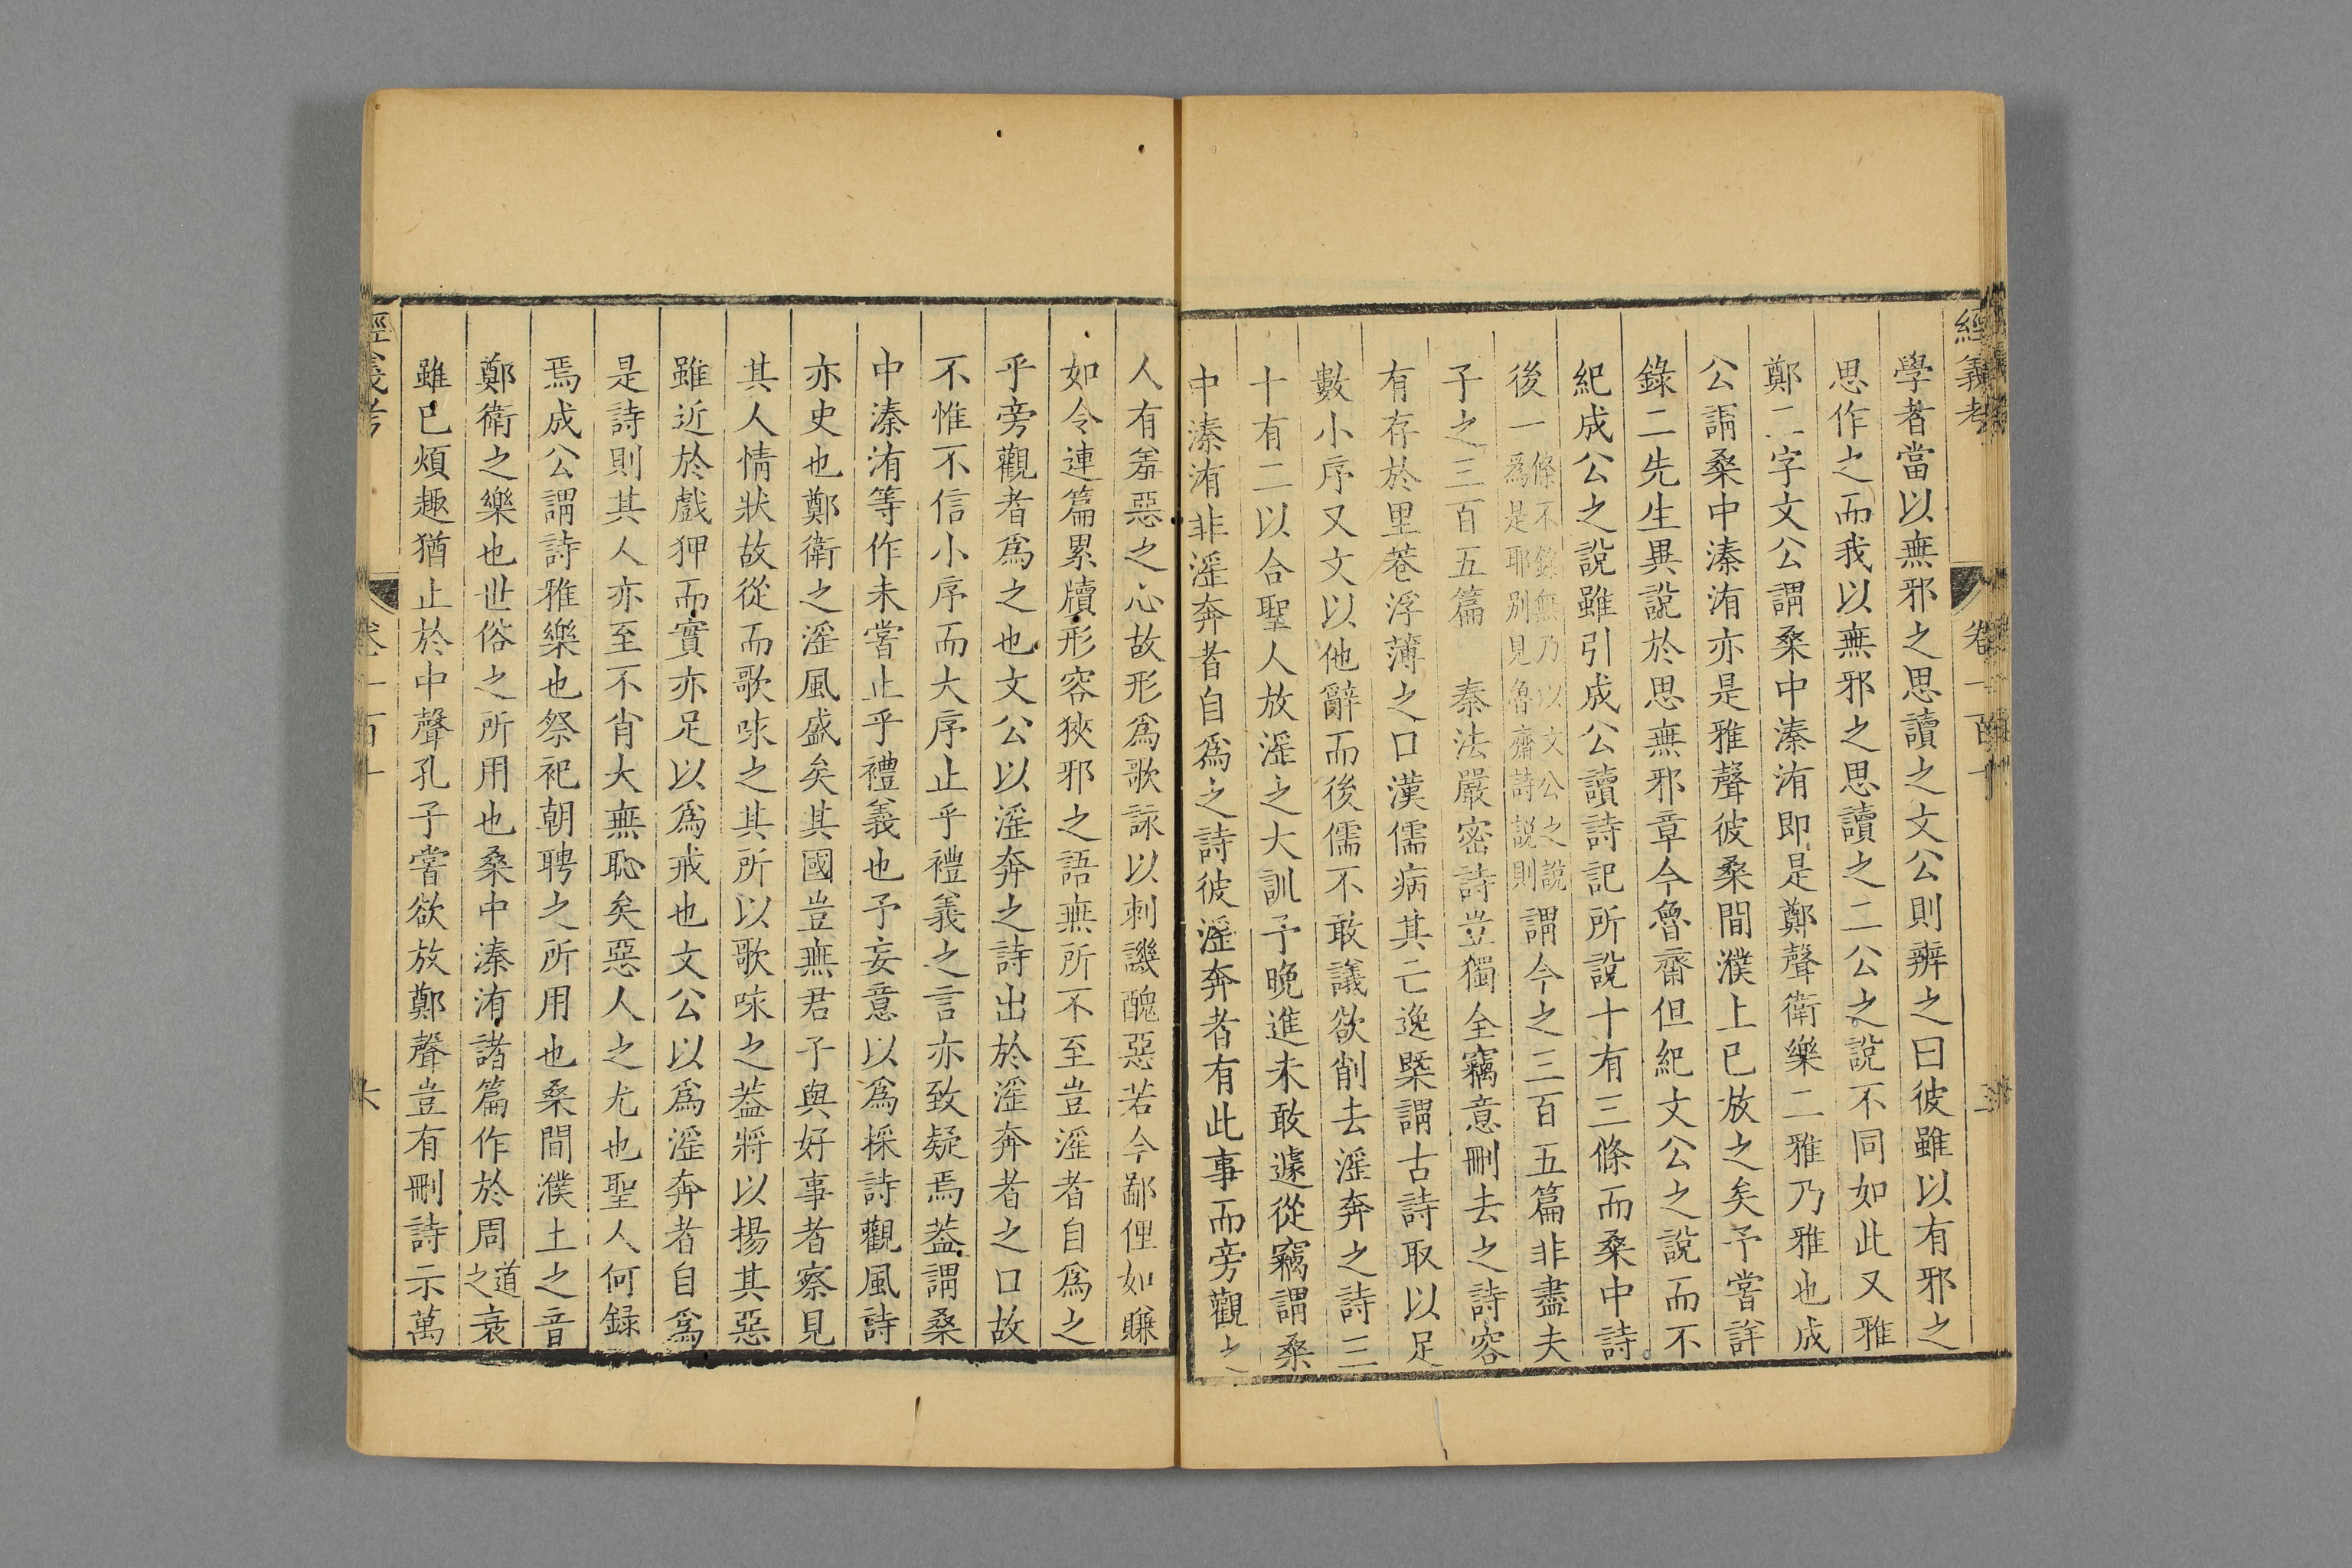 經義考
卷一百十
學者當以無邪之思讀之文公則辨之曰彼雖以有邪之
思作之而我以無邪之思讀之二公之說不同如此又雅
鄭二字文公謂桑中溱洧即是鄭聲衛樂二雅乃雅也成
公謂桑中溱洧亦是雅聲彼桑間濮上已放之矣予嘗詳
錄二先生異說於思無邪章今魯齋但紀文公之說而不
紀成公之說雖引成公讀詩記所說十有三條而桑中詩
後一條不錄無乃以文公之說為是耶別見魯齋詩說則謂今之三百五篇非盡夫
子之三百五篇 秦法嚴密詩豈獨全竊意刪去之詩容
有存於里巷浮薄之口漢儒病其亡逸槩謂古詩取以足
數小序又文以他辭而後儒不敢議欲削去淫奔之詩三
十有二以合聖人放淫之大訓予晚進未敢遽從竊謂桑
中溱洧非淫奔者自爲之詩彼淫奔者有此事而旁觀之
人有羞惡之心故形爲歌詠以刺譏醜惡若今鄙俚如賺
如令連篇累牘形容狹邪之語無所不至豈淫者自爲之
乎旁觀者爲之也文公以淫奔之詩出於淫奔者之口故
不惟不信小序而大序止乎禮義之言亦致疑焉蓋謂桑
中溱洧等作未嘗止乎禮義也予妄意以爲採詩觀風詩
亦史也鄭衛之淫風盛矣其國豈無君子與好事者察見
其人情狀故從而歌咏之其所以歌咏之蓋將以揚其惡
雖近於戲狎而實亦足以爲戒也文公以爲淫奔者自爲
是詩則其人亦至不肖大無恥矣惡人之尤也聖人何録
焉成公謂詩雅樂也祭祀朝聘之所用也桑間濮土之音
鄭衛之樂也世俗之所用也桑中溱洧諸篇作於周道之衰
雖已煩趣猶止於中聲孔子嘗欲放鄭聲豈有刪詩示萬
經義考
卷一百十